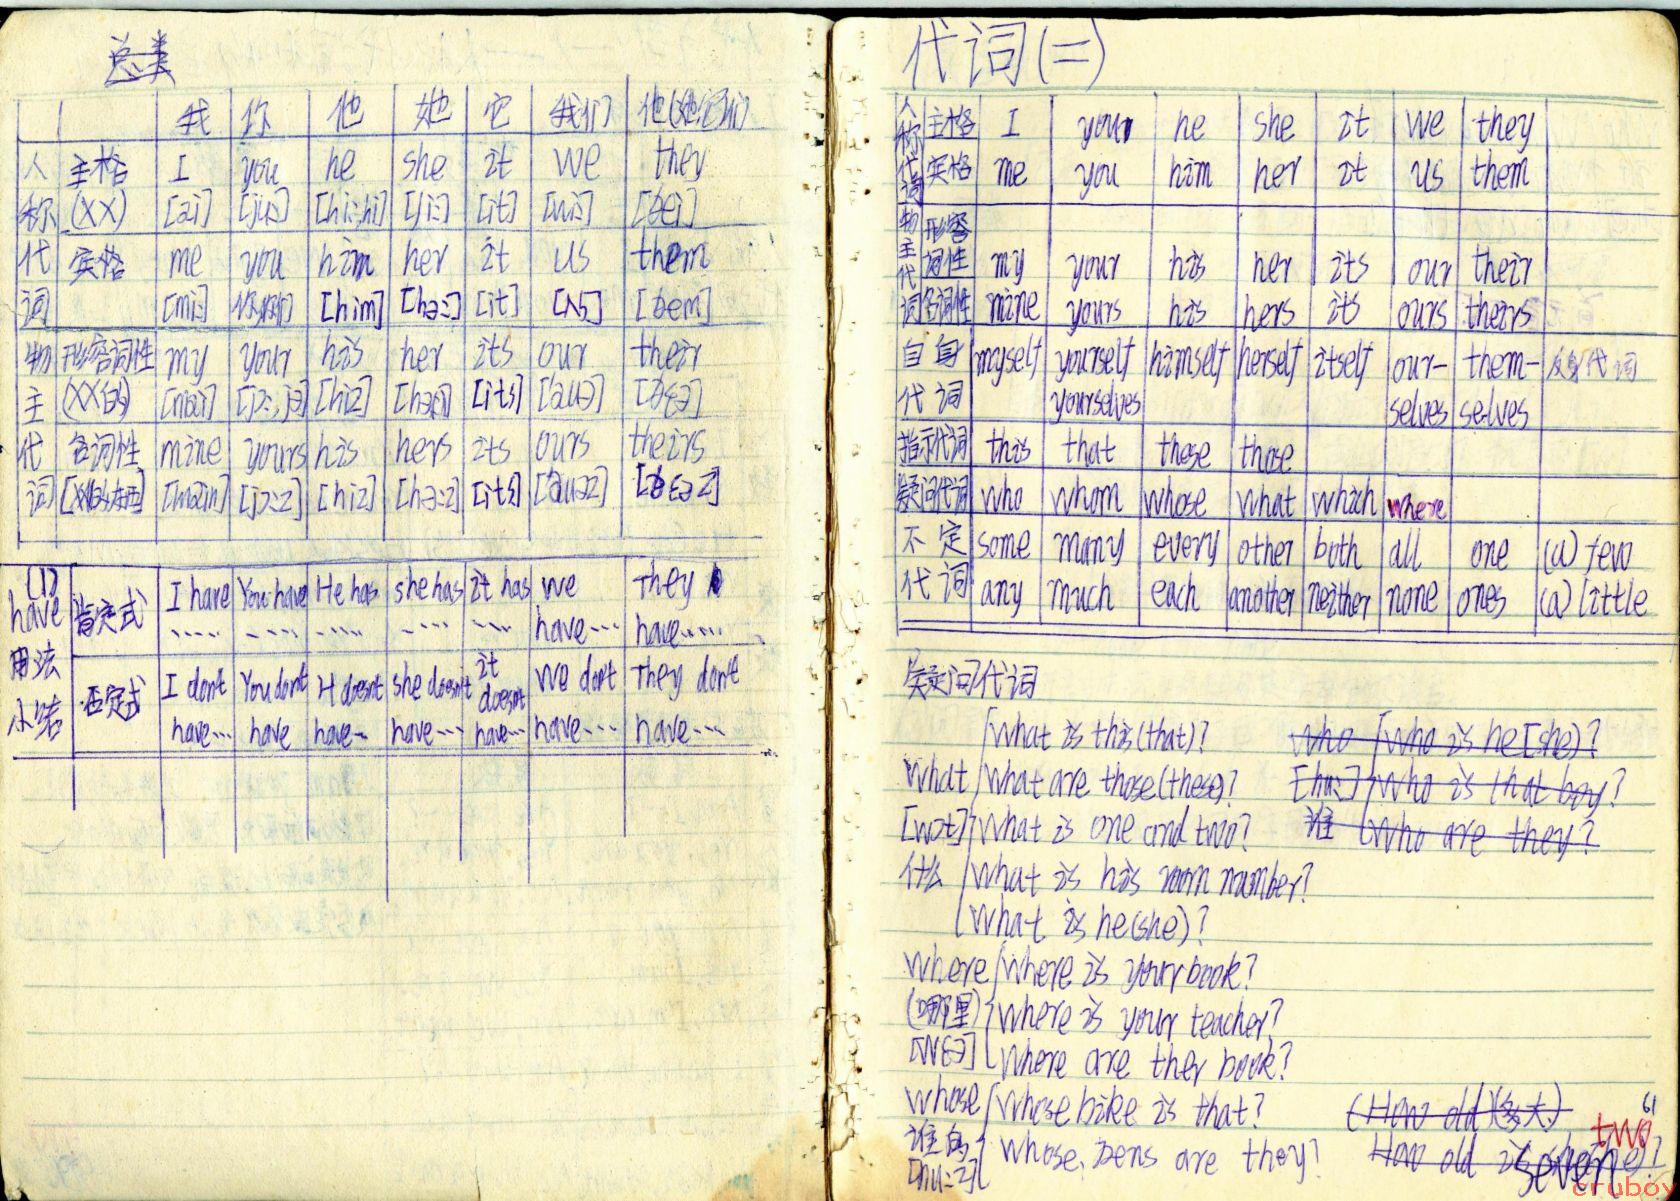 总类
我 你 他 她 它 我们 他(她它)们
人 主格 I you he she it we they
称 (XX) [ai] [ju:] [hi:,hi] [ʃi:] [it] [wi:] [ðei]
代 宾格 me you him her it us them
词 [mi:] [him] [hə:] [it] [ʌs] [ðem]
物 形容词性 my your his her its our their
主 (XX的) [mai] [jɔ:,jə] [hiz] [hə:] [its] [auə] [ðɛə]
代 名词性 mine yours his hers its ours theirs
词 [main] [jɔ:z] [hiz] [hə:z] [its] [auəz] [ðɛəz]
(1) 肯定式 I have You have He has she has it has we They
have ..... .... .... .... .... have... have.....
用法 否定式 I don't You don't H doesn't she doesn't it doesn't we don't They don't
小结 have... have have.. have... have... have... have...
代词(二)
人称 主格 I your he she it we they
代词 宾格 me you him her it us them
物主 形容
代 词性 my your his her its our their
词 名词性 mine yours his hers its ours theirs
自身 myself yourself himself herself itself our- them- 反身代词
代词 yourselves selves selves
指示代词 this that these those
疑问代词 who whom whose what which where
不定 some many every other both all one (a) few
代词 any much each another neither none ones (a) little
疑问代词
What is this(that)? who who is he[she)?
what what are those(these)? [hu:] who is that boy?
[wɔt] what is one and two? 谁 who are they?
什么 what is his room number?
what is he(she)?
where where is your book?
(哪里) where is your teacher?
[wɛə] where are ther book?
whose whose bike is that? (How old)(多大)
谁的 whose pens are they? How old is she?
[hu:z]
61
two
seven
cruboy